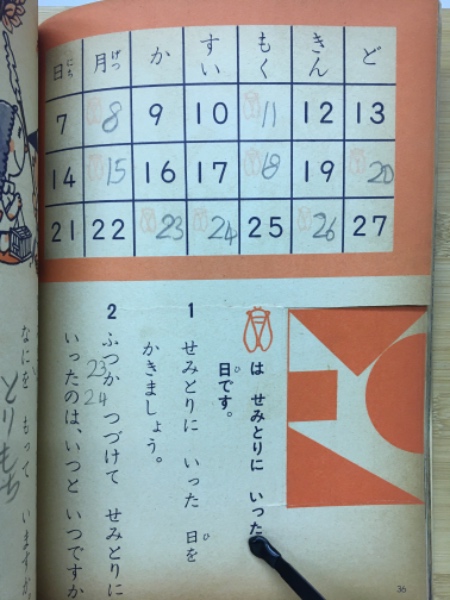 日 月 か すい もく きん ど
にち げつ
7 8 9 10 11 12 13
14 15 16 17 18 19 20
21 22 23 24 25 26 27
は せみとりに いった
日です。
ひ
1 せみとりに いった 日を
ひ
かきましょう。
2 ふつか つづけて せみとりに
23
24
いったのは、いつと いつですか
なにを もって いますか
とりもち
36